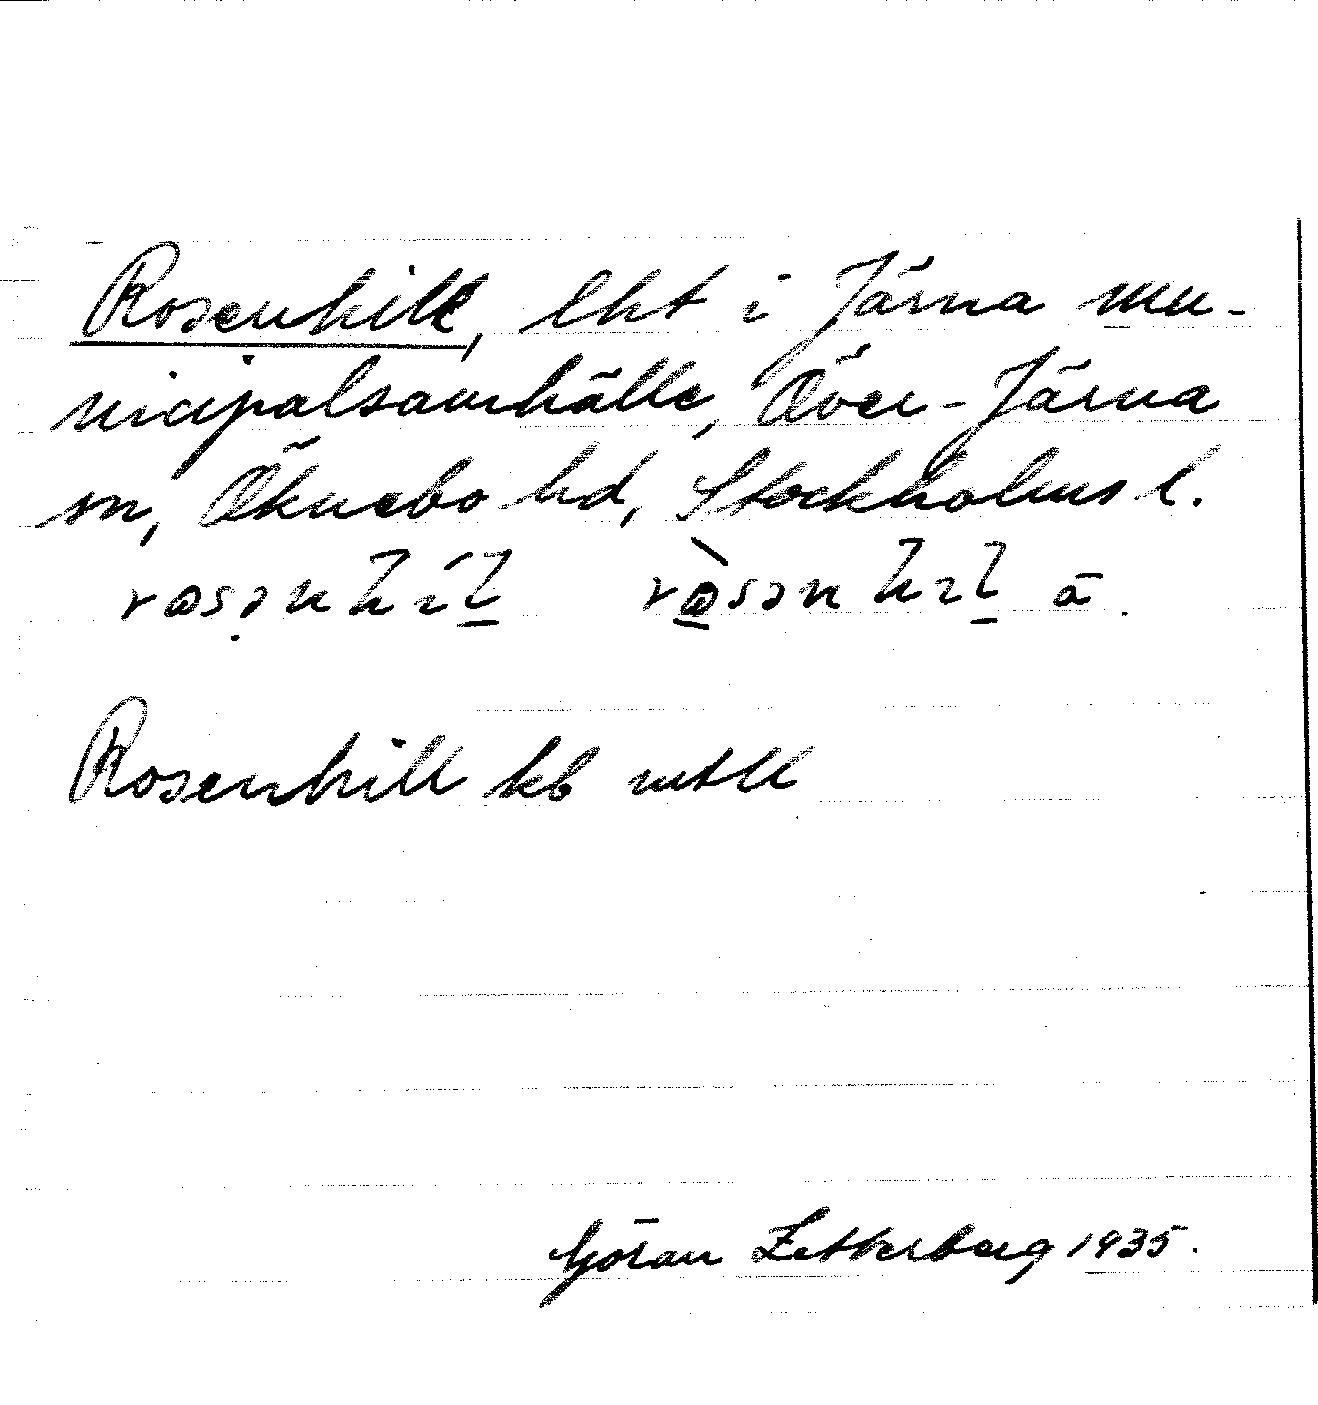 Rosenhill, lht i Järna mu-
nicipalsamhälle, Över-Järna
sn, Öknebo hd, Stockholms l.
rosənhíl ròsənhɪl ā.
Rosenhill kb mtll
Göran Zetterberg 1935.